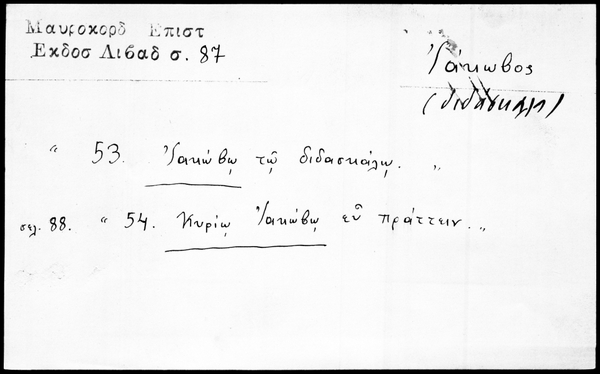 Μαυροκορδ Επιστ
Εκδοσ Λιβαδ σ. 87
Ἰάκωβος
(διδάσκαλ)
" 53. Ἰακώβῳ τῷ διδασκάλῳ. "
σελ. 88. " 54. Κυρίῳ Ἰακώβῳ εὖ πράττειν. "